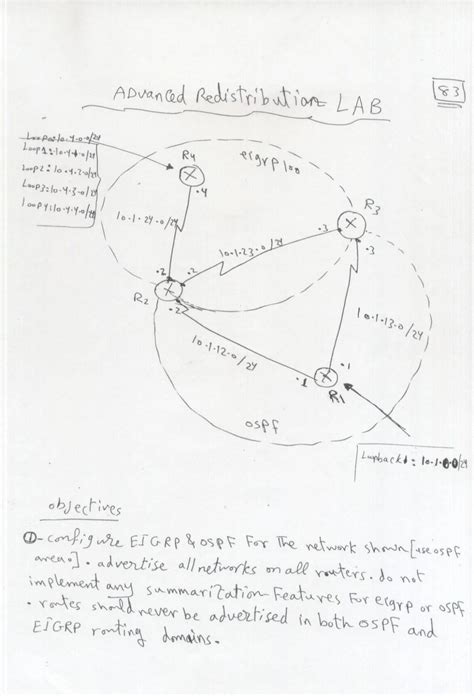 Advanced Redistribution LAB
83
Loop0:10.4.0.0/24
Loop1:10.4.1.0/24
Loop2:10.4.2.0/24
Loop3:10.4.3.0/24
Loop4:10.4.4.0/24
R4
eigrp 100
.4
R3
.3
.3
10.1.24.0/24
10.1.23.0/24
.2
.2
R2
.2
10.1.13.0/24
10.1.12.0/24
.1
.1
R1
ospf
Loopback1: 10.1.0.0/24
objectives
①-configure EIGRP & OSPF For The network shown [use ospf
area 0]. advertise all networks on all routers. do not
implement any summarization Features For eigrp or ospf
. routes should never be advertised in both OSPF and
EIGRP routing domains.